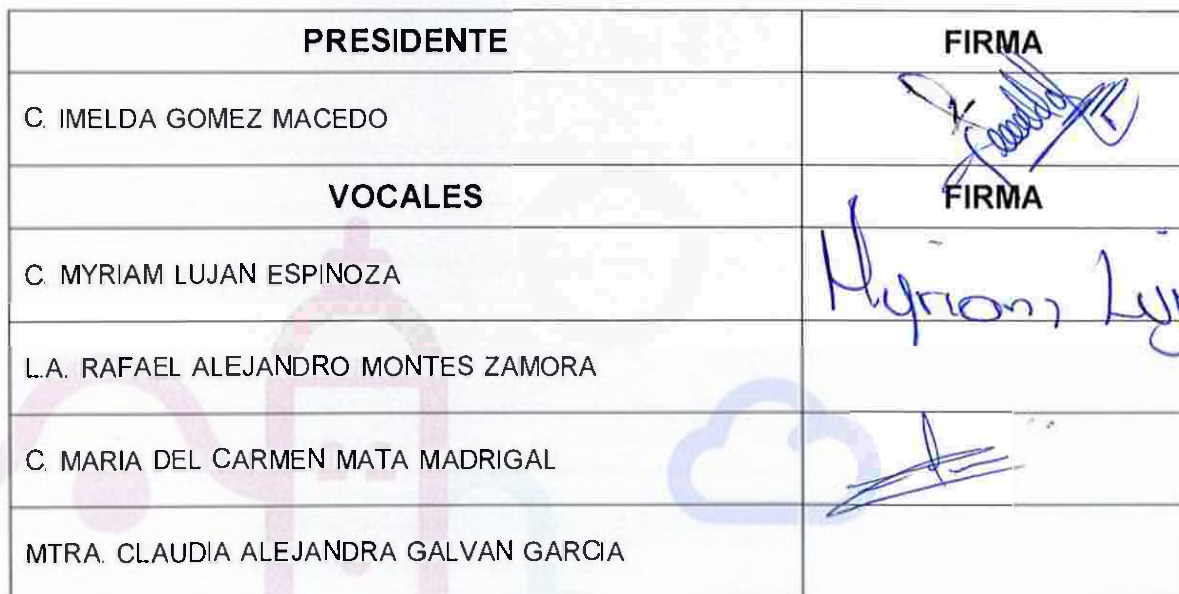 PRESIDENTE FIRMA
C. IMELDA GOMEZ MACEDO
VOCALES FIRMA
C. MYRIAM LUJAN ESPINOZA Myriam
L.A. RAFAEL ALEJANDRO MONTES ZAMORA
C. MARIA DEL CARMEN MATA MADRIGAL
MTRA. CLAUDIA ALEJANDRA GALVAN GARCIA